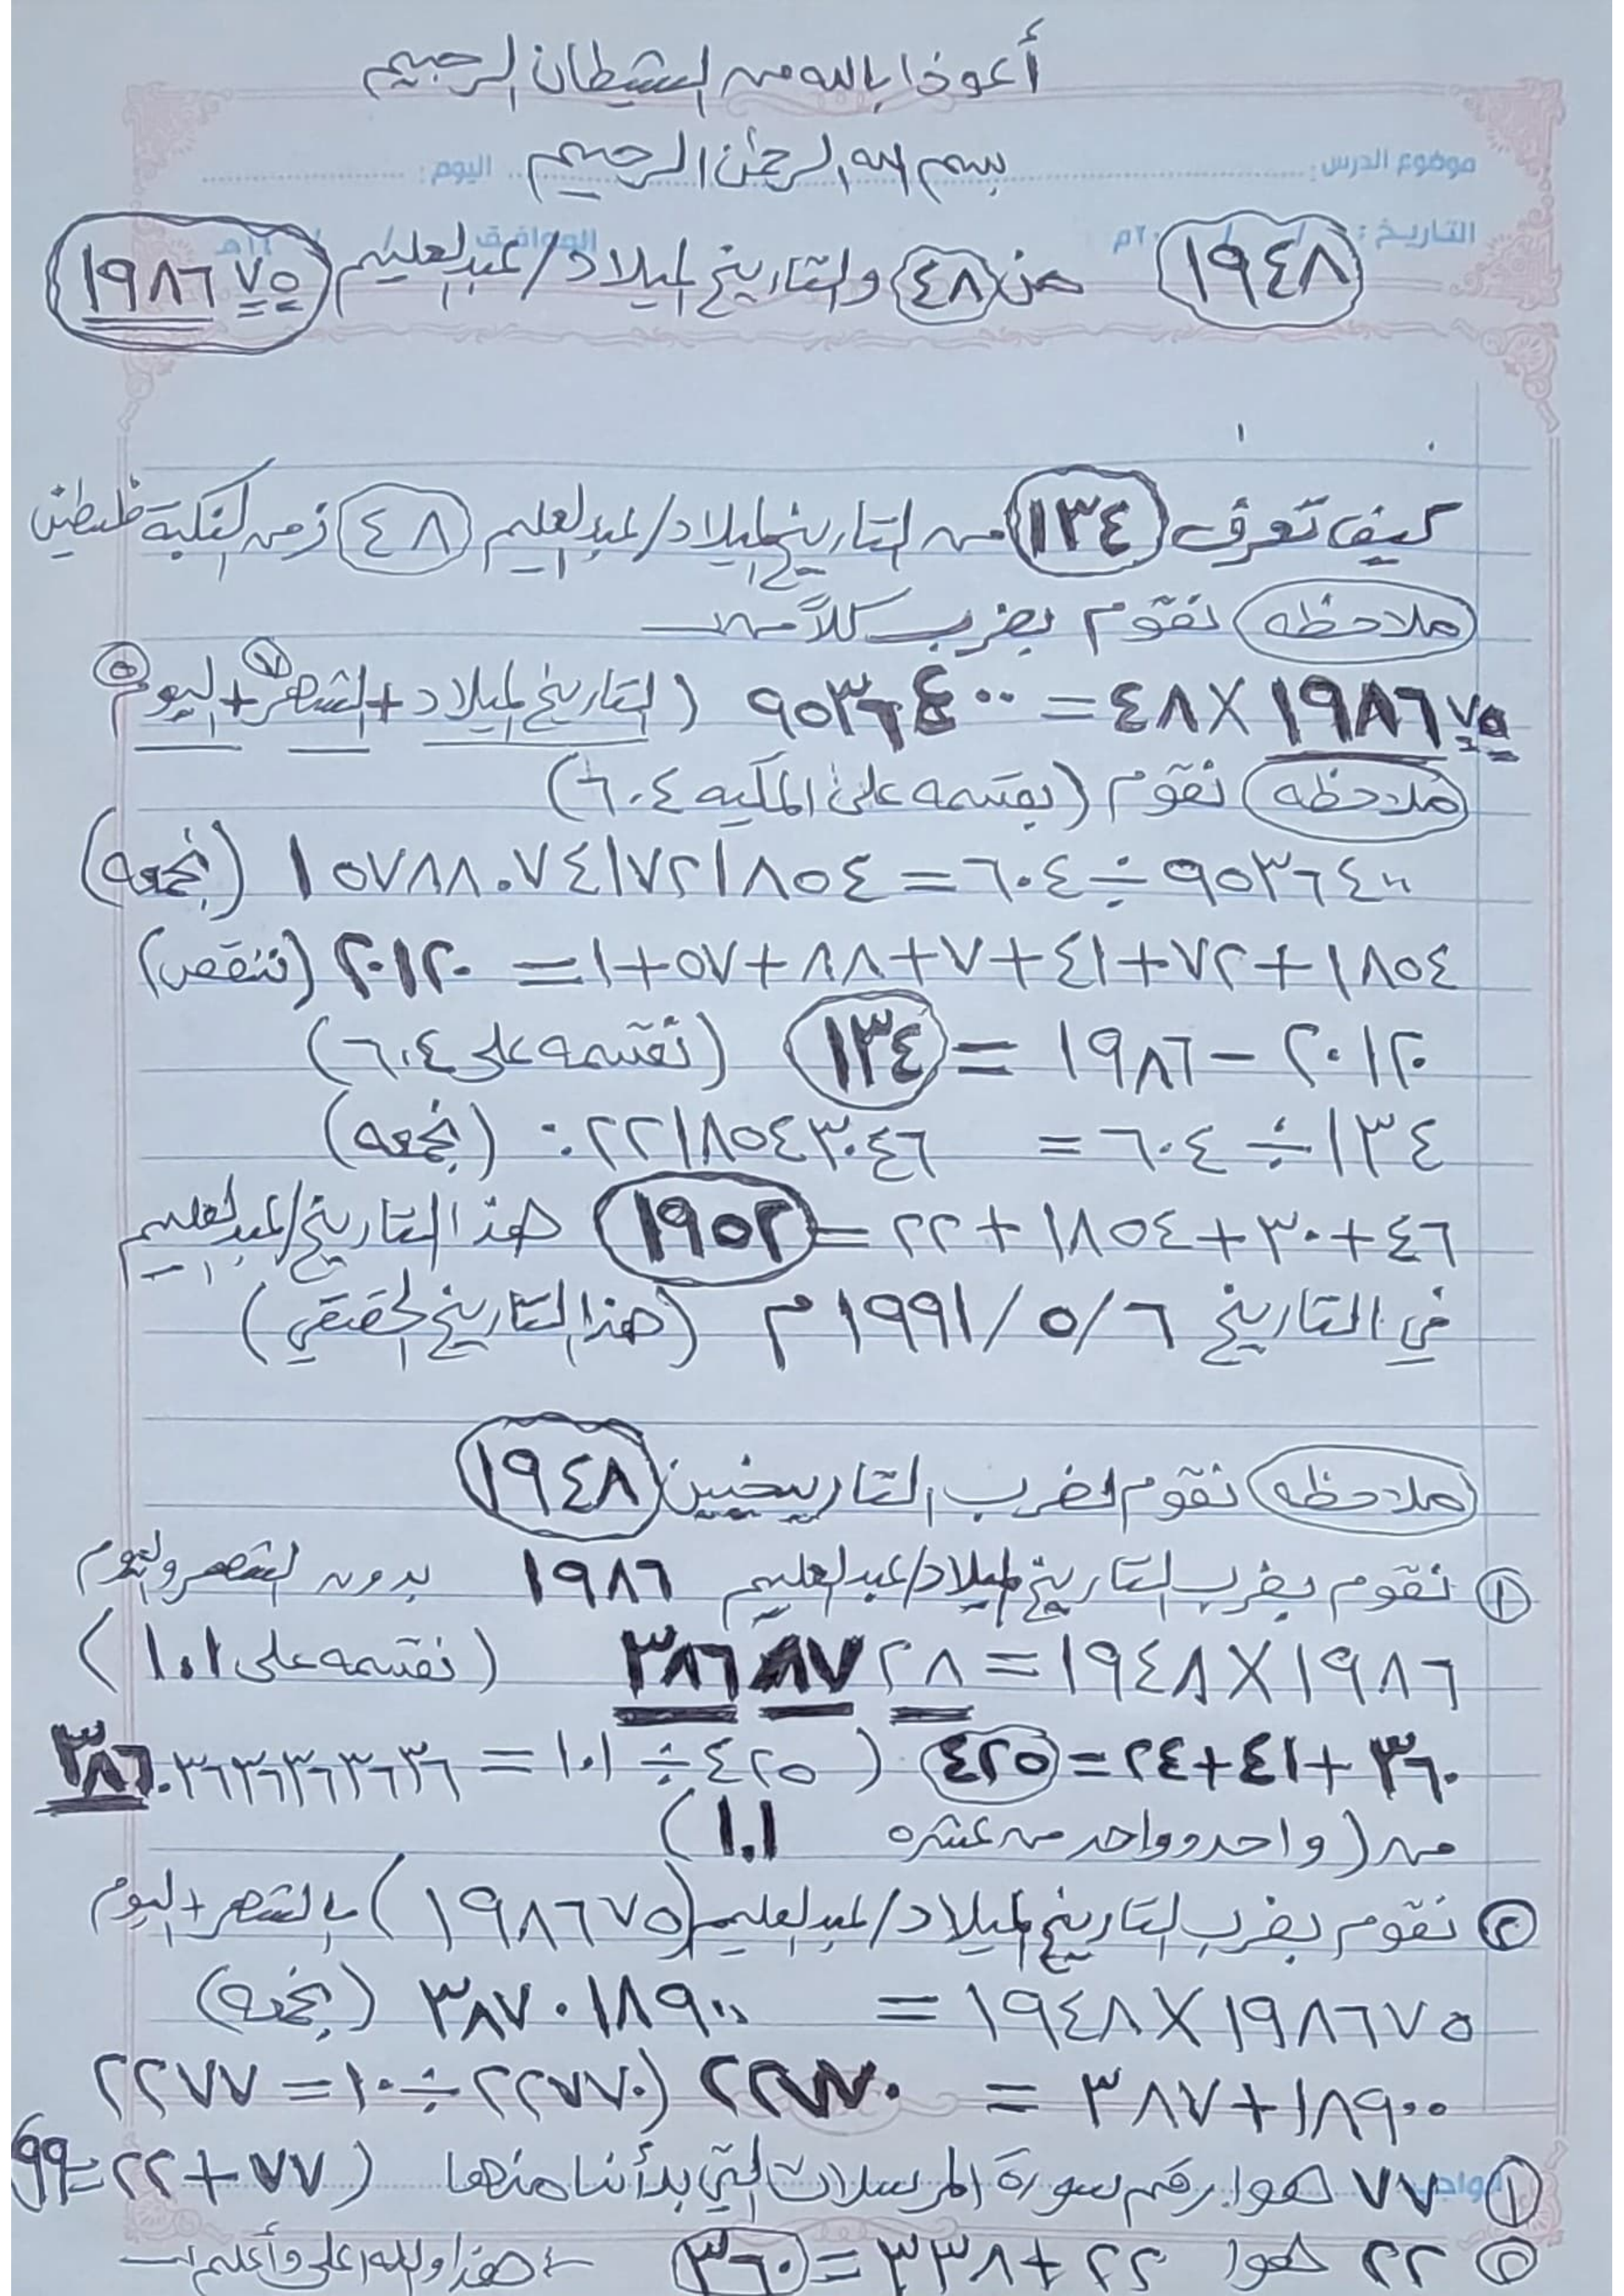 أعوذا بالله من الشيطان الرجيم
بسم الله الرحمن الرحيم
موضوع الدرس: اليوم:
التاريخ: / / ٢٠م الموافق / / ١٤هـ
١٩٤٨ من ٤٨ والتاريخ الميلاد/عبدالعليم ١٩٨٦٧٥
كيف تعرف ١٣٤ من التاريخ الميلاد/عبدالعليم ٤٨ زمن النكبة فلسطين
ملاحظه نقوم بضرب كلاً من
١٩٨٦٧٥ × ٤٨ = ٩٥٣٦٤٠٠ (التاريخ الميلاد + الشهر ٧ + اليوم ٥
ملاحظه نقوم (بقسمه على المكيه ٦٠٤)
٩٥٣٦٤٠٠ ÷ ٦٠٤ = ١٥٧٨٨.٧٤١٧٢١٨٥٤ (نجمعه)
١٨٥٤ + ٧٢ + ٤١ + ٧ + ٨٨ + ٥٧ + ١ = ٢٠١٢٠ (ننقص)
٢٠١٢٠ - ١٩٨٦ = ١٣٤ (نقسمه على ٦٠٤)
١٣٤ ÷ ٦٠٤ = ٠.٢٢١٨٥٤٣٠٤٦ (نجمعه)
٤٦ + ٣٠ + ١٨٥٤ + ٢٢ = ١٩٥٢ هذا التاريخ/عبدالعليم
في التاريخ ٦/٥/١٩٩١م (هذا التاريخ الحقيقي)
ملاحظه نقوم لضرب التاريخين ١٩٤٨
① نقوم بضرب التاريخ الميلاد/عبدالعليم ١٩٨٦ بدون الشهر واليوم
١٩٨٦ × ١٩٤٨ = ٣٨٦٨٧٢٨ (نقسمه على ١.١)
٣٦٠ + ٤١ + ٢٤ = ٤٢٥ (٤٢٥ ÷ ١.١ = ٣٨٦.٣٦٣٦٣٦٣٦٣٦
من (واحد وواحد من عشره ١.١)
② نقوم بضرب التاريخ الميلاد/عبدالعليم (١٩٨٦٧٥) بالشهر + اليوم
١٩٨٦٧٥ × ١٩٤٨ = ٣٨٧٠١٨٩٠٠ (نجمعه)
١٨٩٠٠ + ٣٨٧ = ٢٢٧٧٠ (٢٢٧٧٠ ÷ ١٠ = ٢٢٧٧
① ٧٧ هوا رقم سورة المرسلات التي بدأنا منها (٧٧ + ٢٢ = ٩٩)
② ٢٢ هوا ٢٢ + ٣٣٨ = ٣٦٠ هذا والله اعلى وأعلم